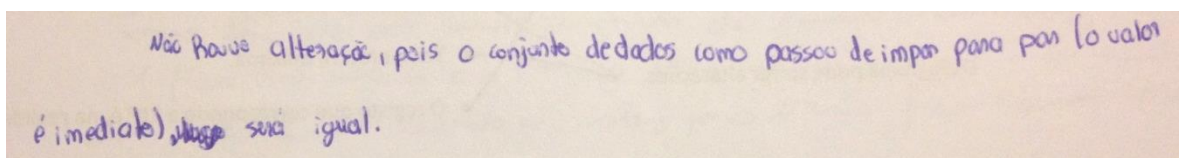 Não houve alteração, pois o conjunto de dados como passou de impar para par (o valor
é imediato), será igual.